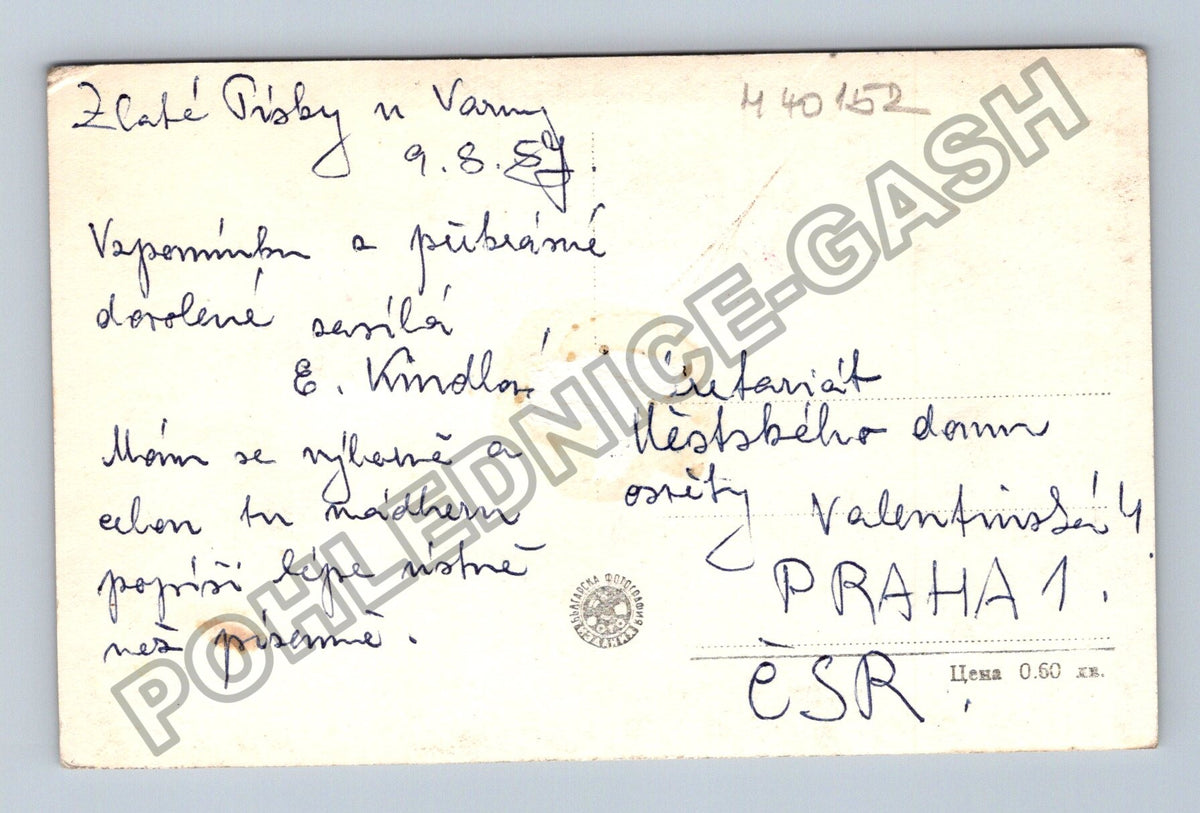 Zlaté Písky u Varny
9.8.
Vzpomínku z překrásné
dovolené zasílá
E. Kindlová
Mám se výborně a
celou tu nádheru
popíši lépe ústně
než písemně.
M 40152
retariát
Městského domu
osvěty Valentinská 4
PRAHA 1.
ČSR,
БЪЛГАРСКА ФОТОГРАФИЯ
Цена 0.60 лв.
POHLEDNICE-GASH